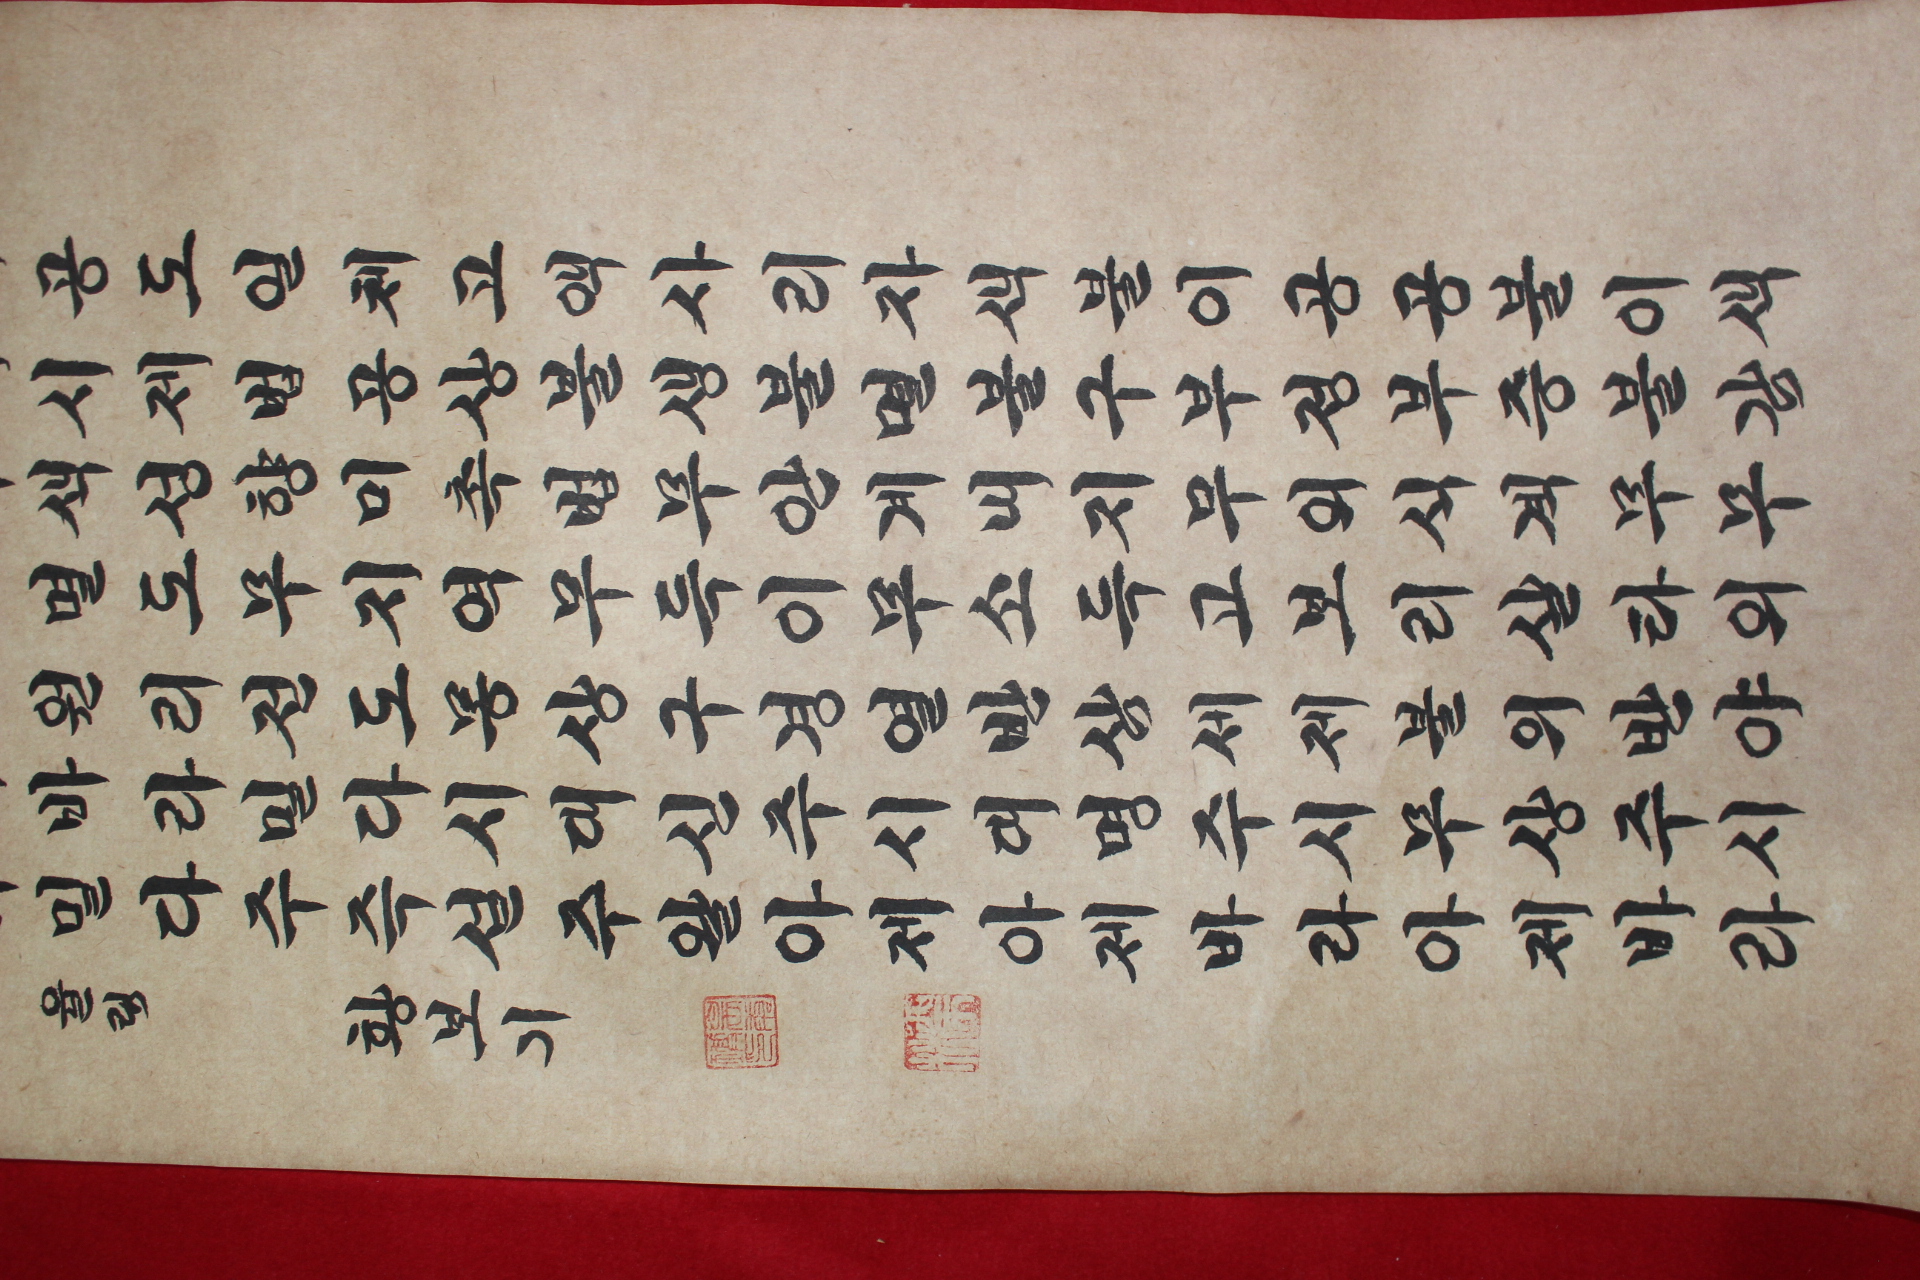 공도일체고액사리자색불이공공불이색
시제법공상불생불멸불구부정부증불감
색성향미촉법무안계내지무외식계무무
멸도무지역무득이무소득고보리살타외
원리전도몽상구경열반삼세제불의반야
바라밀다시대신주시대명주시무상주시
밀다주즉설주왈아제아제바라아제바라
율림 황보기